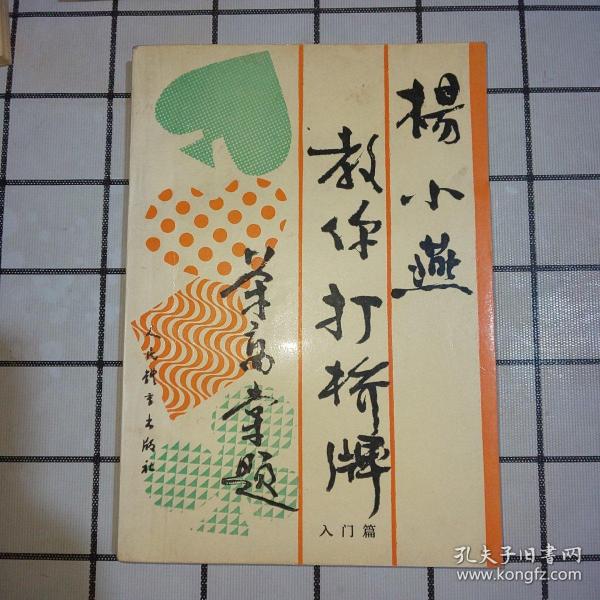 楊小燕
教你打桥牌
入门篇
荣高棠题
人民體育出版社
孔夫子旧书网
www.kongfz.com